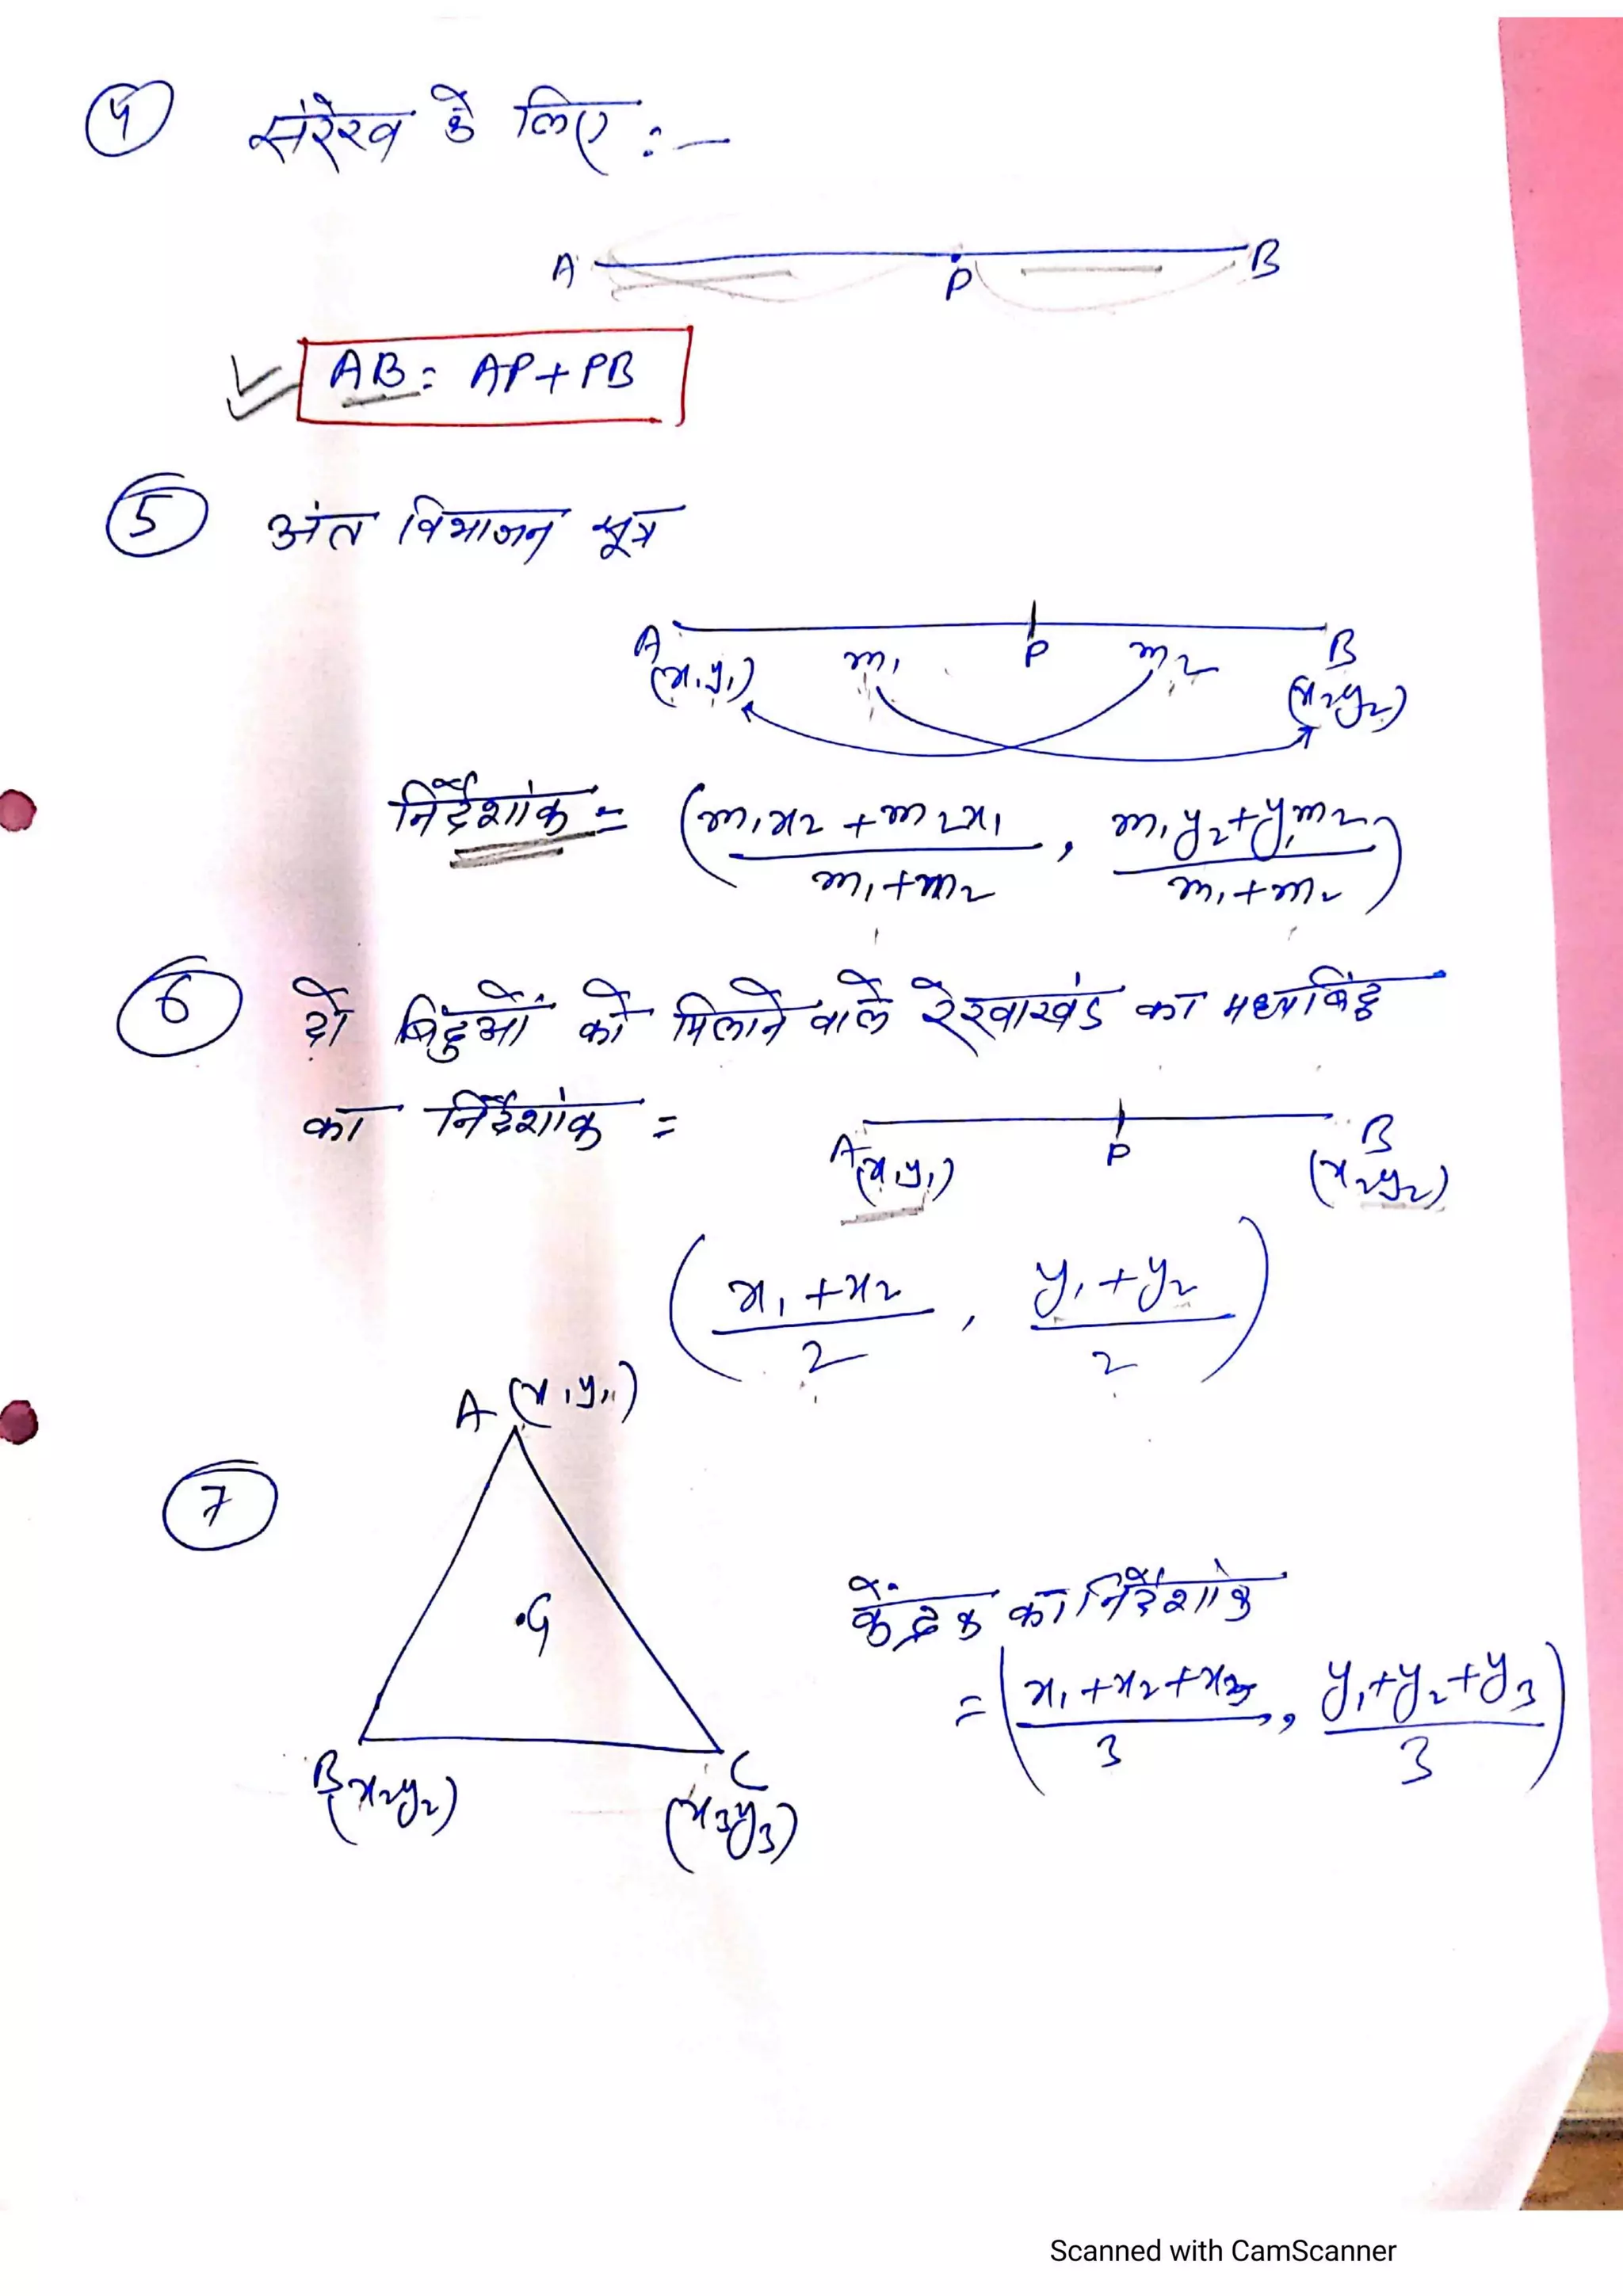 ④ संरेख के लिए :-
A P B
AB = AP + PB
⑤ अंत विभाजन सूत्र
A m₁ P m₂ B
(x₁y₁) (x₂y₂)
निर्देशांक = (m₁x₂ + m₂x₁ / m₁+m₂ , m₁y₂+y₁m₂ / m₁+m₂)
⑥ दो बिंदुओं को मिलाने वाले रेखाखंड का मध्यबिंदु
का निर्देशांक =
A P B
(x₁y₁) (x₂y₂)
(x₁+x₂ / 2 , y₁+y₂ / 2)
A (x₁y₁)
⑦
G
केंद्रक का निर्देशांक
= (x₁+x₂+x₃ / 3 , y₁+y₂+y₃ / 3)
B C
(x₂y₂) (x₃y₃)
Scanned with CamScanner